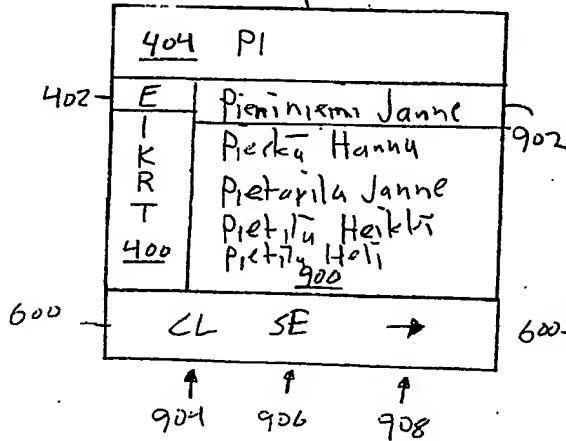 404 PI
402 E Pieniniemi Janne 902
I Pieskä Hannu
K Pietarila Janne
R Pietilä Heikki
T Pietilä Heli
400 900
600 CL SE → 600
904 906 908